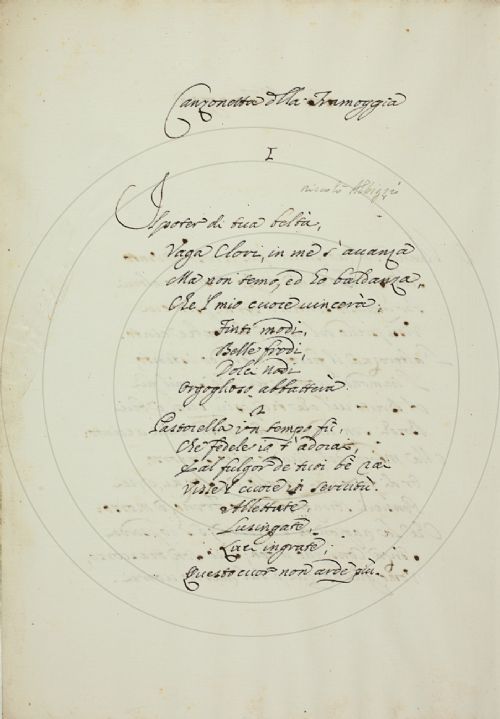 Canzonetta della Tramoggia
I
niccolò Albizzi
Il poter di tua beltà,
Vaga Clori, in me s'avanza
Ma non temo, ed ho baldanza,
Che 'l mio cuore vincerà,
Finti modi,
Belle frodi,
Dolci nodi
Orgoglioso abbatterà.
2
Pastorella un tempo fù,
Che fedele io t'adorai,
E al fulgor de tuoi bè rai
Visse 'l cuore in servitù.
Allettate,
Lusingate,
Luci ingrate,
Questo cuor non arde più.